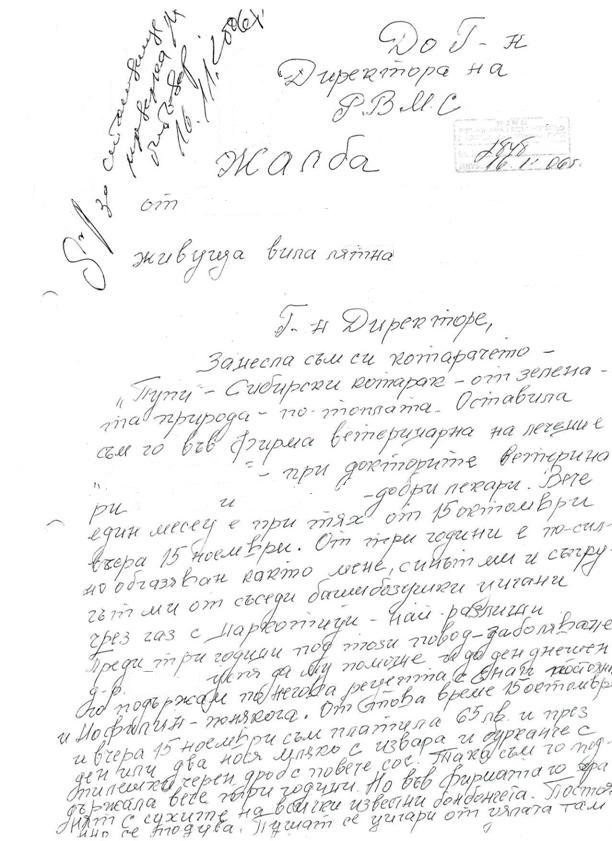 До Г-н
Директора на
Р.В.М.С
16.11.2006г.
16.11.06г.
Жалба
от
живуща вила лятна
Г-н Директоре,
Занесла съм си котарачето -
"Пупи" - Сибирски котарак - от зелена-
та природа - по-топлата. Оставила
съм го във фирма ветеринарна на лечение
" " - при докторите ветерина
ри и - добри лекари. Вече
един месец е при тях от 15 октомври
вчера 15 ноември. От три години е по-сил-
но обгазяван както мене, синът ми и съпру-
гът ми от съседи башибозушки цигани
чрез газ с наркотици - най-различни
Преди три години под този повод - заболяване
д-р. успя да му помогне и до ден днешен
го подържам по негова рецепта с
и Нофилин - понякога. От това време 15 октомври
и вчера 15 ноември съм платила 65 лв. и през
ден или два нося мляко с извара и бурканче с
пилешко черен дроб с повече сос. Така съм го под-
държала вече три години. Но във фирмата го хра
нят с сухите на всички известни бонбончета. Постоя
нно се Пушат се цигари от цялата там